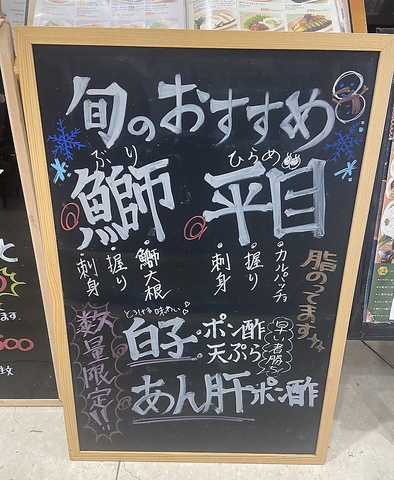 旬のおすすめ
ぶり
鰤
・鰤大根
・握り
・刺身
ひらめ
平目
・カルパッチョ
・握り
・刺身
脂のってます
数量限定!!
とろける味わい♡
白子
ポン酢
天ぷら
早い者勝ち
あん肝ポン酢